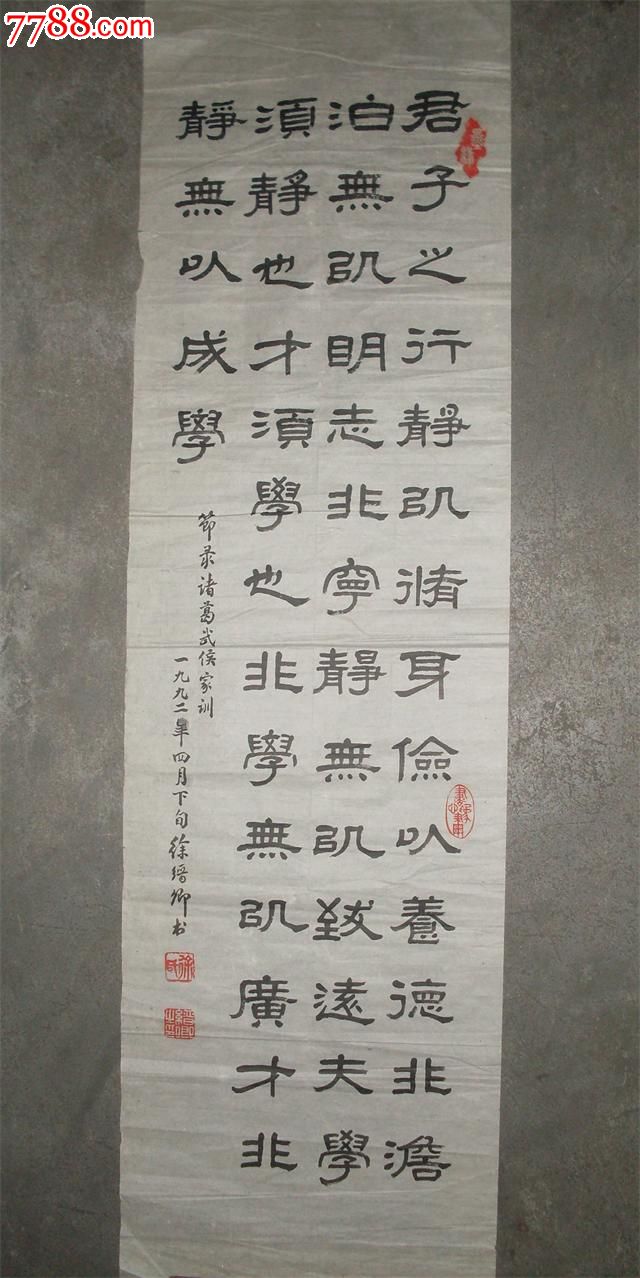 7788.com
君子之行靜以脩身儉以養德非澹
泊無以明志非寧靜無以致遠夫學
須靜也才須學也非學無以廣才非
靜無以成學
節录诸葛武侯家训
一九九二年四月下旬徐瑨卿书